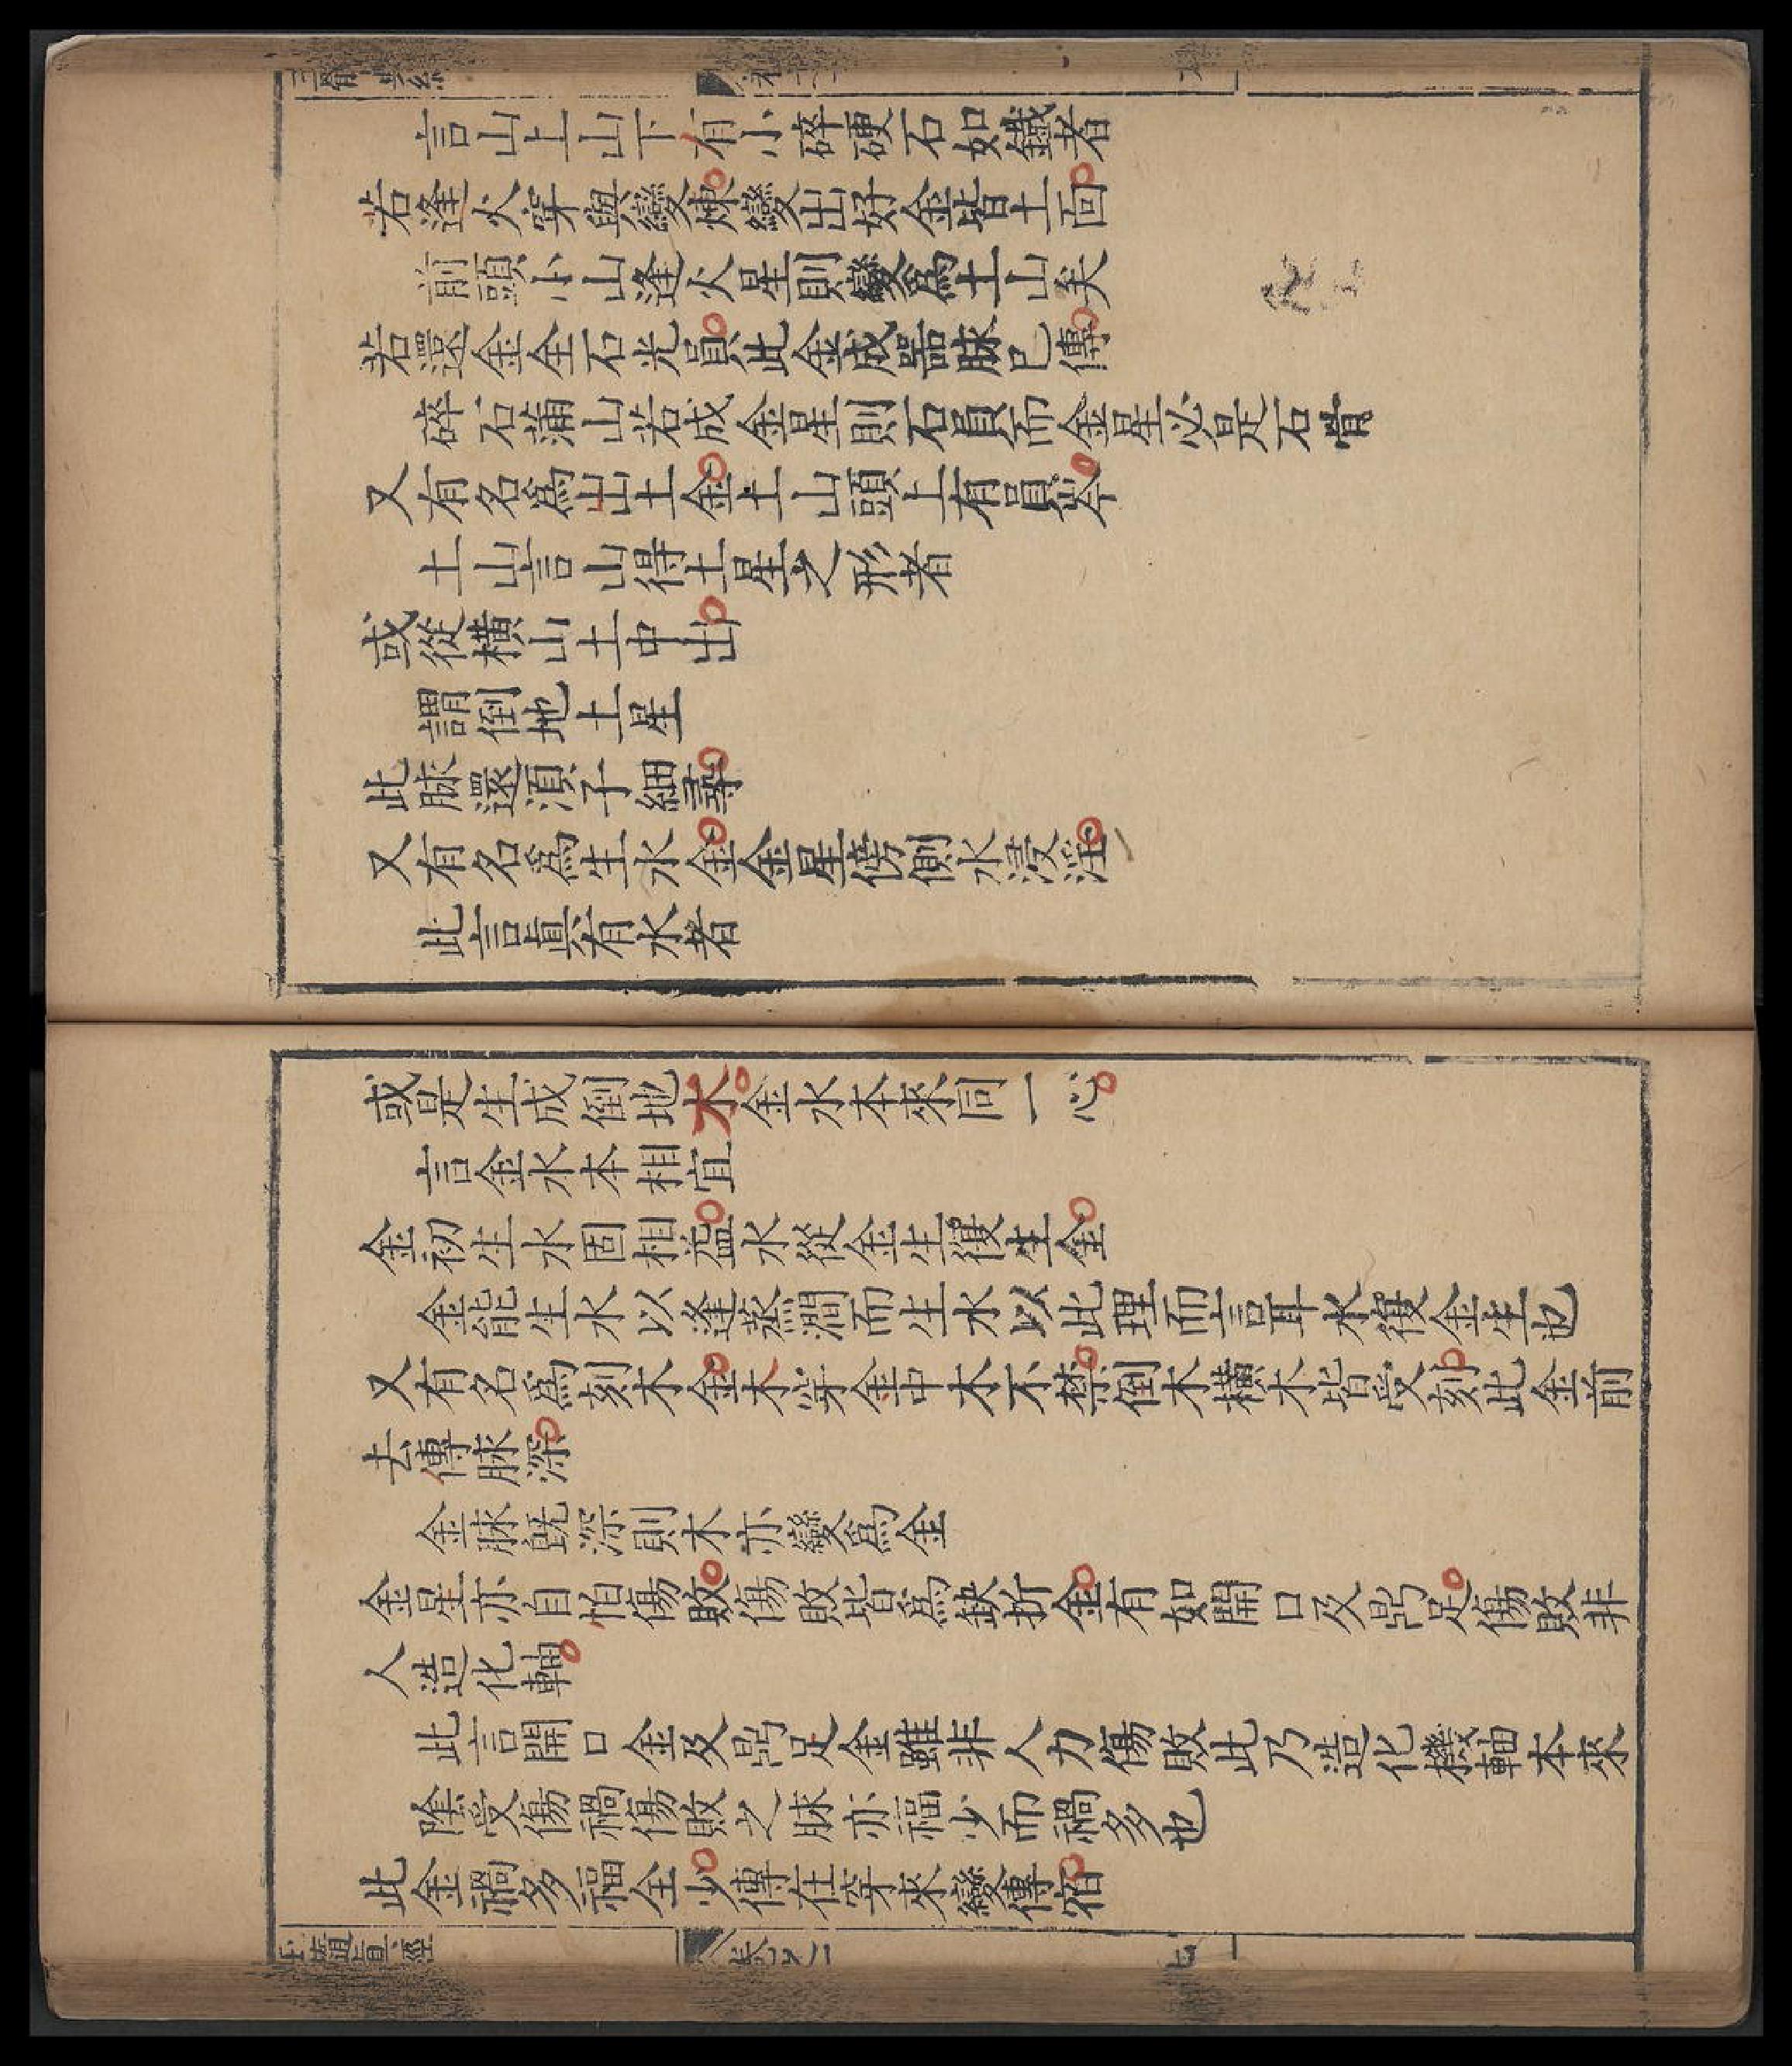 言山上山下有小碎硬石如鐵者
若逢火穿與變煉變出好金皆土面
前頭小山逢火星則變爲土山矣
若還金全石光員此金成器脉已傳
碎石蒲山若成金星則石員而金星必是石嘗
又有名爲出土金土山頭上有員岑
土山言山得土星之形者
或從橫山土中出
謂倒地土星
此脉還須子細尋
又有名爲生水金金星傍側水浸淫
此言眞有水者
或是生成倒地木金水本來同一心
言金水本相宜
金初生水固相益水從金生復生金
金能生水以逢蒸潤而生水以此理而言耳水復金生也
又有名爲刻木金木穿金中木不禁倒木橫木皆受刻此金前
去傳脉深
金脉旣深則木亦變爲金
金星亦自怕傷敗傷敗皆爲缺折金有如開口及吊足傷敗非
人造化軸
此言開口金及吊足金雖非人力傷敗此乃造化機軸本來
陰受傷禍傷敗之脉亦福少而禍多也
此金禍多福全少傳在穿來變傳宿
玉髓眞經
卷之二
七